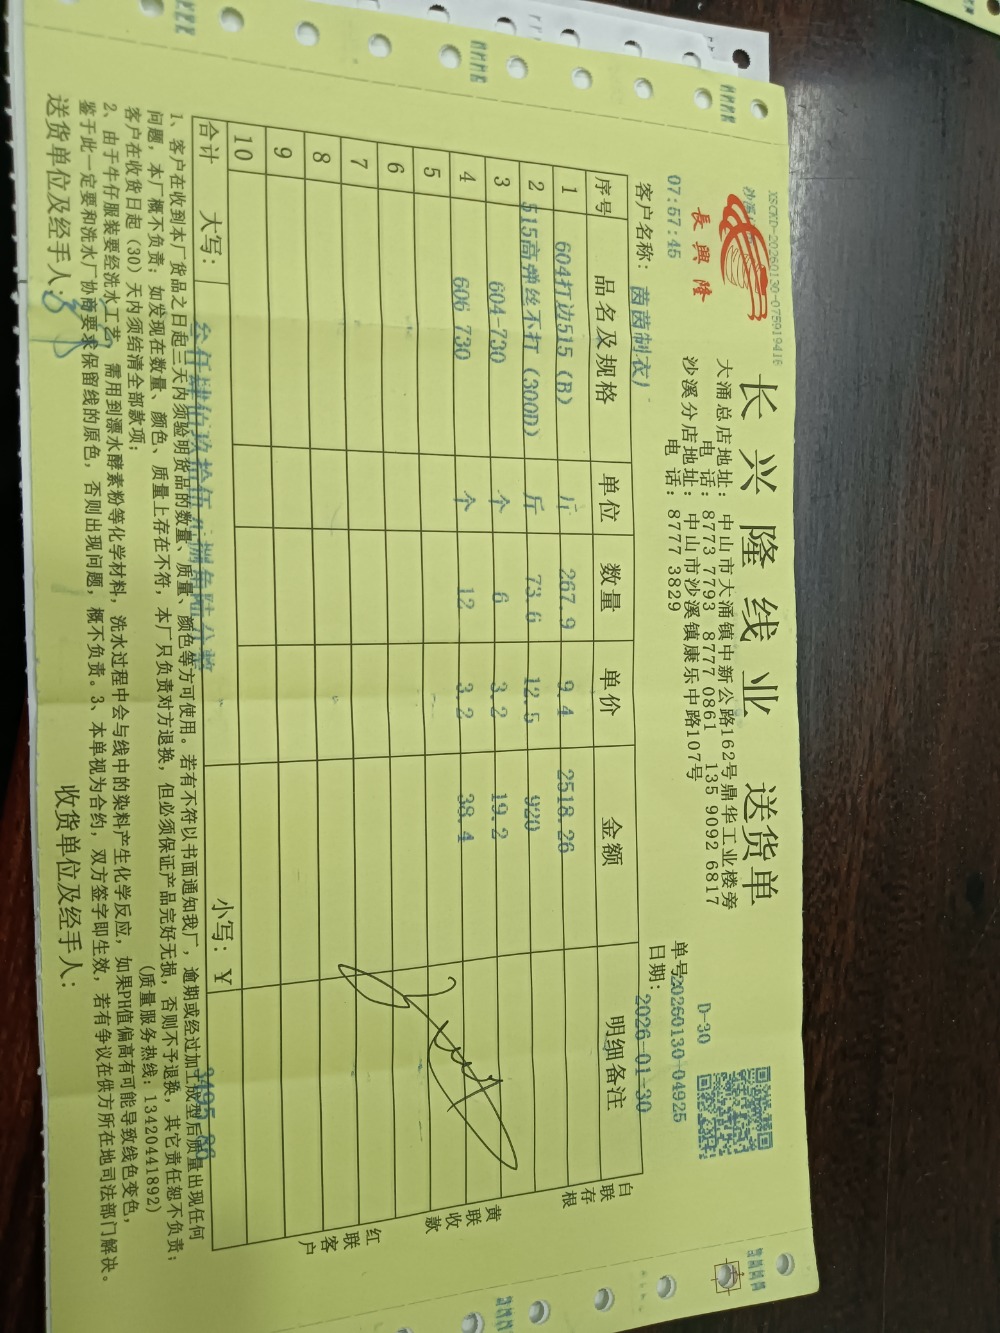 XSCKD-20260130-075919416
長興隆
长兴隆线业 送货单
大涌总店地址：中山市大涌镇中新公路162号鼎华工业楼旁
电 话：8773 7793 8777 0861 135 9092 6817
沙溪分店地址：中山市沙溪镇康乐中路107号
电 话：8777 3829
D-30
单号20260130-04925
07:57:45
日期：2026-01-30
客户名称：茵茵制衣厂
序号 品名及规格 单位 数量 单价 金额 明细备注
1 604打边515（B） 斤 267.9 9.4 2518.26
2 515高弹丝不打（300D） 斤 73.6 12.5 920
3 604-730 个 6 3.2 19.2
4 606 730 个 12 3.2 38.4
5
6
7
8
9
10
合计 大写：叁仟肆佰玖拾伍元捌角陆分整 小写：￥ 3495.86
白联存根
黄联收款
红联客户
1、客户在收到本厂货品之日起三天内须验明货品的数量、质量、颜色等方可使用。若有不符以书面通知我厂，逾期或经过加工成型后质量出现任何
问题，本厂概不负责；如发现在数量、颜色、质量上存在不符，本厂只负责对方退换，但必须保证产品完好无损，否则不予退换，其它责任恕不负责；
客户在收货日起（30）天内须结清全部款项； （质量服务热线：13420441892）
2、由于牛仔服装要经洗水工艺，需用到漂水酵素粉等化学材料，洗水过程中会与线中的染料产生化学反应，如果PH值偏高有可能导致线色变色，
鉴于此一定要和洗水厂协商要求保留线的原色，否则出现问题，概不负责。3、本单视为合约，双方签字即生效，若有争议在供方所在地司法部门解决。
送货单位及经手人： 收货单位及经手人：